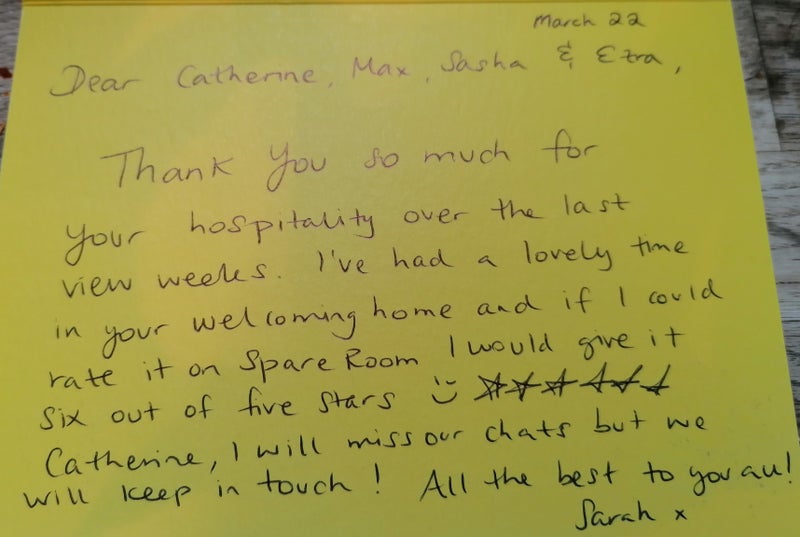 March 22
Dear Catherine, Max, Sasha & Ezra,
Thank You so much for
your hospitality over the last
view weeks. I've had a lovely time
in your welcoming home and if I could
rate it on Spare Room I would give it
six out of five stars
Catherine, I will miss our chats but we
will keep in touch! All the best to you all!
Sarah x